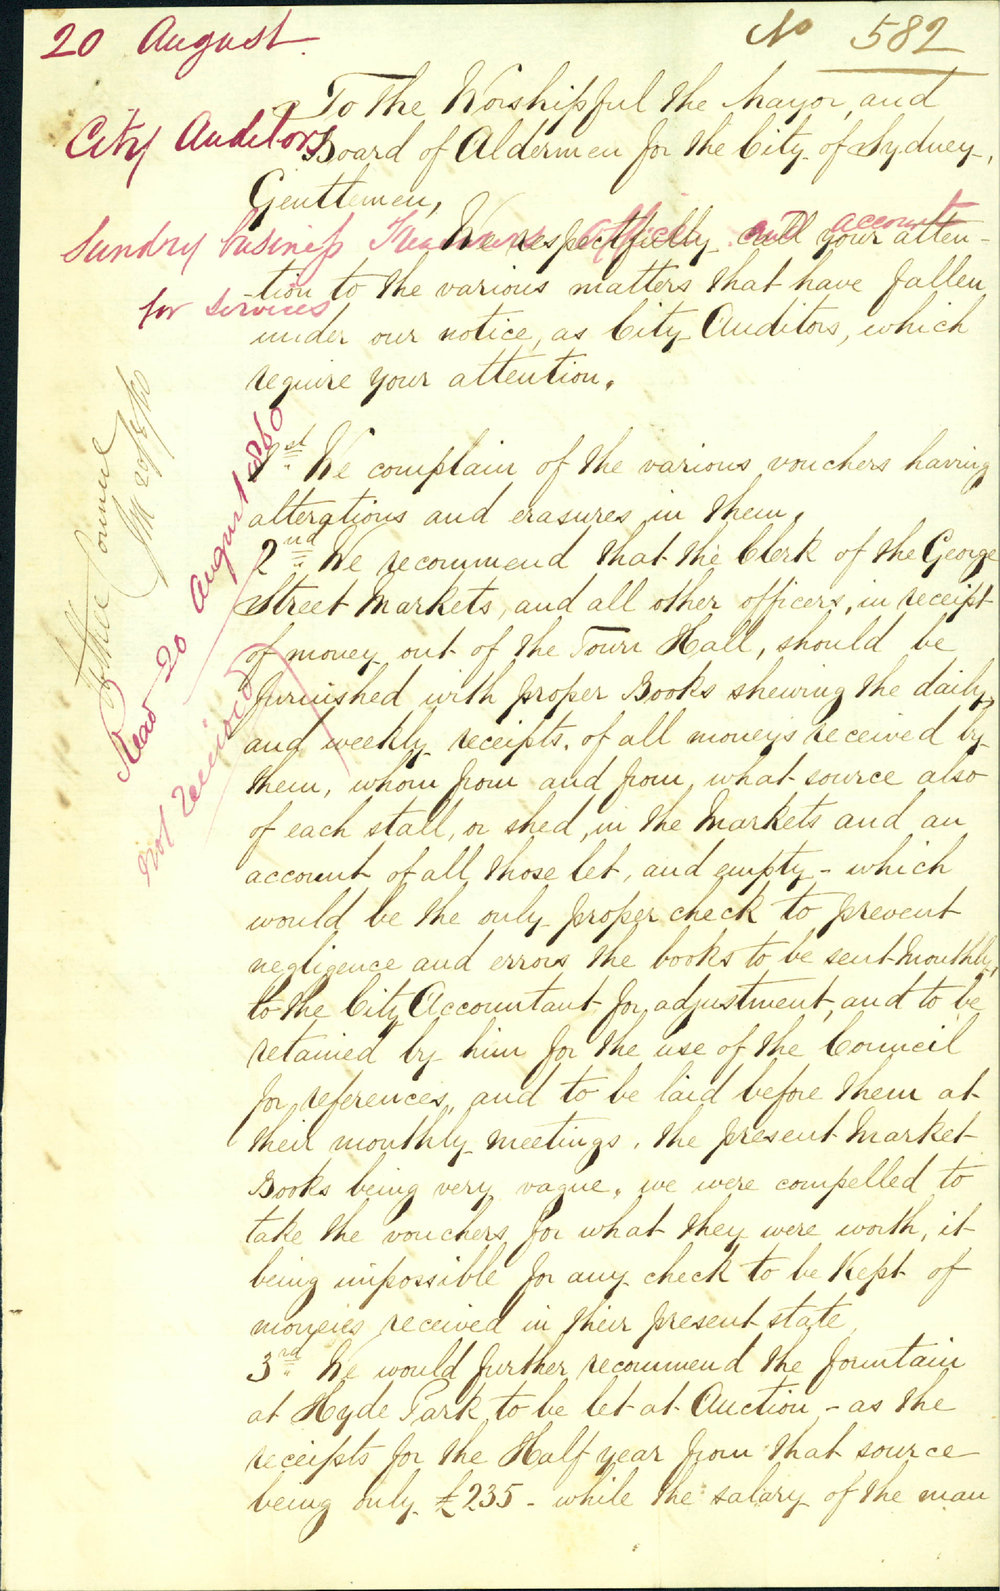 20 August
No 582
To the Worshipful the Mayor, and
City Auditors
Board of Aldermen for the City of Sydney,
Gentlemen,
Sundry business Treasurers Office and account
We respectfully call your atten-
-tion to the various matters that have fallen
for services
under our notice, as City Auditors, which
require your attention.
1st We complain of the various vouchers having
alterations and erasures in them.
2nd We recommend that the Clerk of the George
Street Markets, and all other officers, in receipt
of money out of the Town Hall, should be
furnished with proper Books shewing the daily,
and weekly receipts, of all moneys received by
them, whom from and from what source also
of each stall, or shed, in the Markets and an
account of all those let, and empty - which
would be the only proper check to prevent
negligence and errors the books to be sent Monthly,
to the City Accountant for adjustment, and to be
retained by him for the use of the Council
for references, and to be laid before them at
their monthly meetings. the present Market
Books being very vague, we were compelled to
take the vouchers for what they were worth, it
being impossible for any check to be Kept of
moneies received in their present state
3rd We would further recommend the fountain
at Hyde Park to be let at Auction - as the
receipts for the Half year from that source
being only £235 - while the salary of the man
Council
Read 20 August 1860
not received